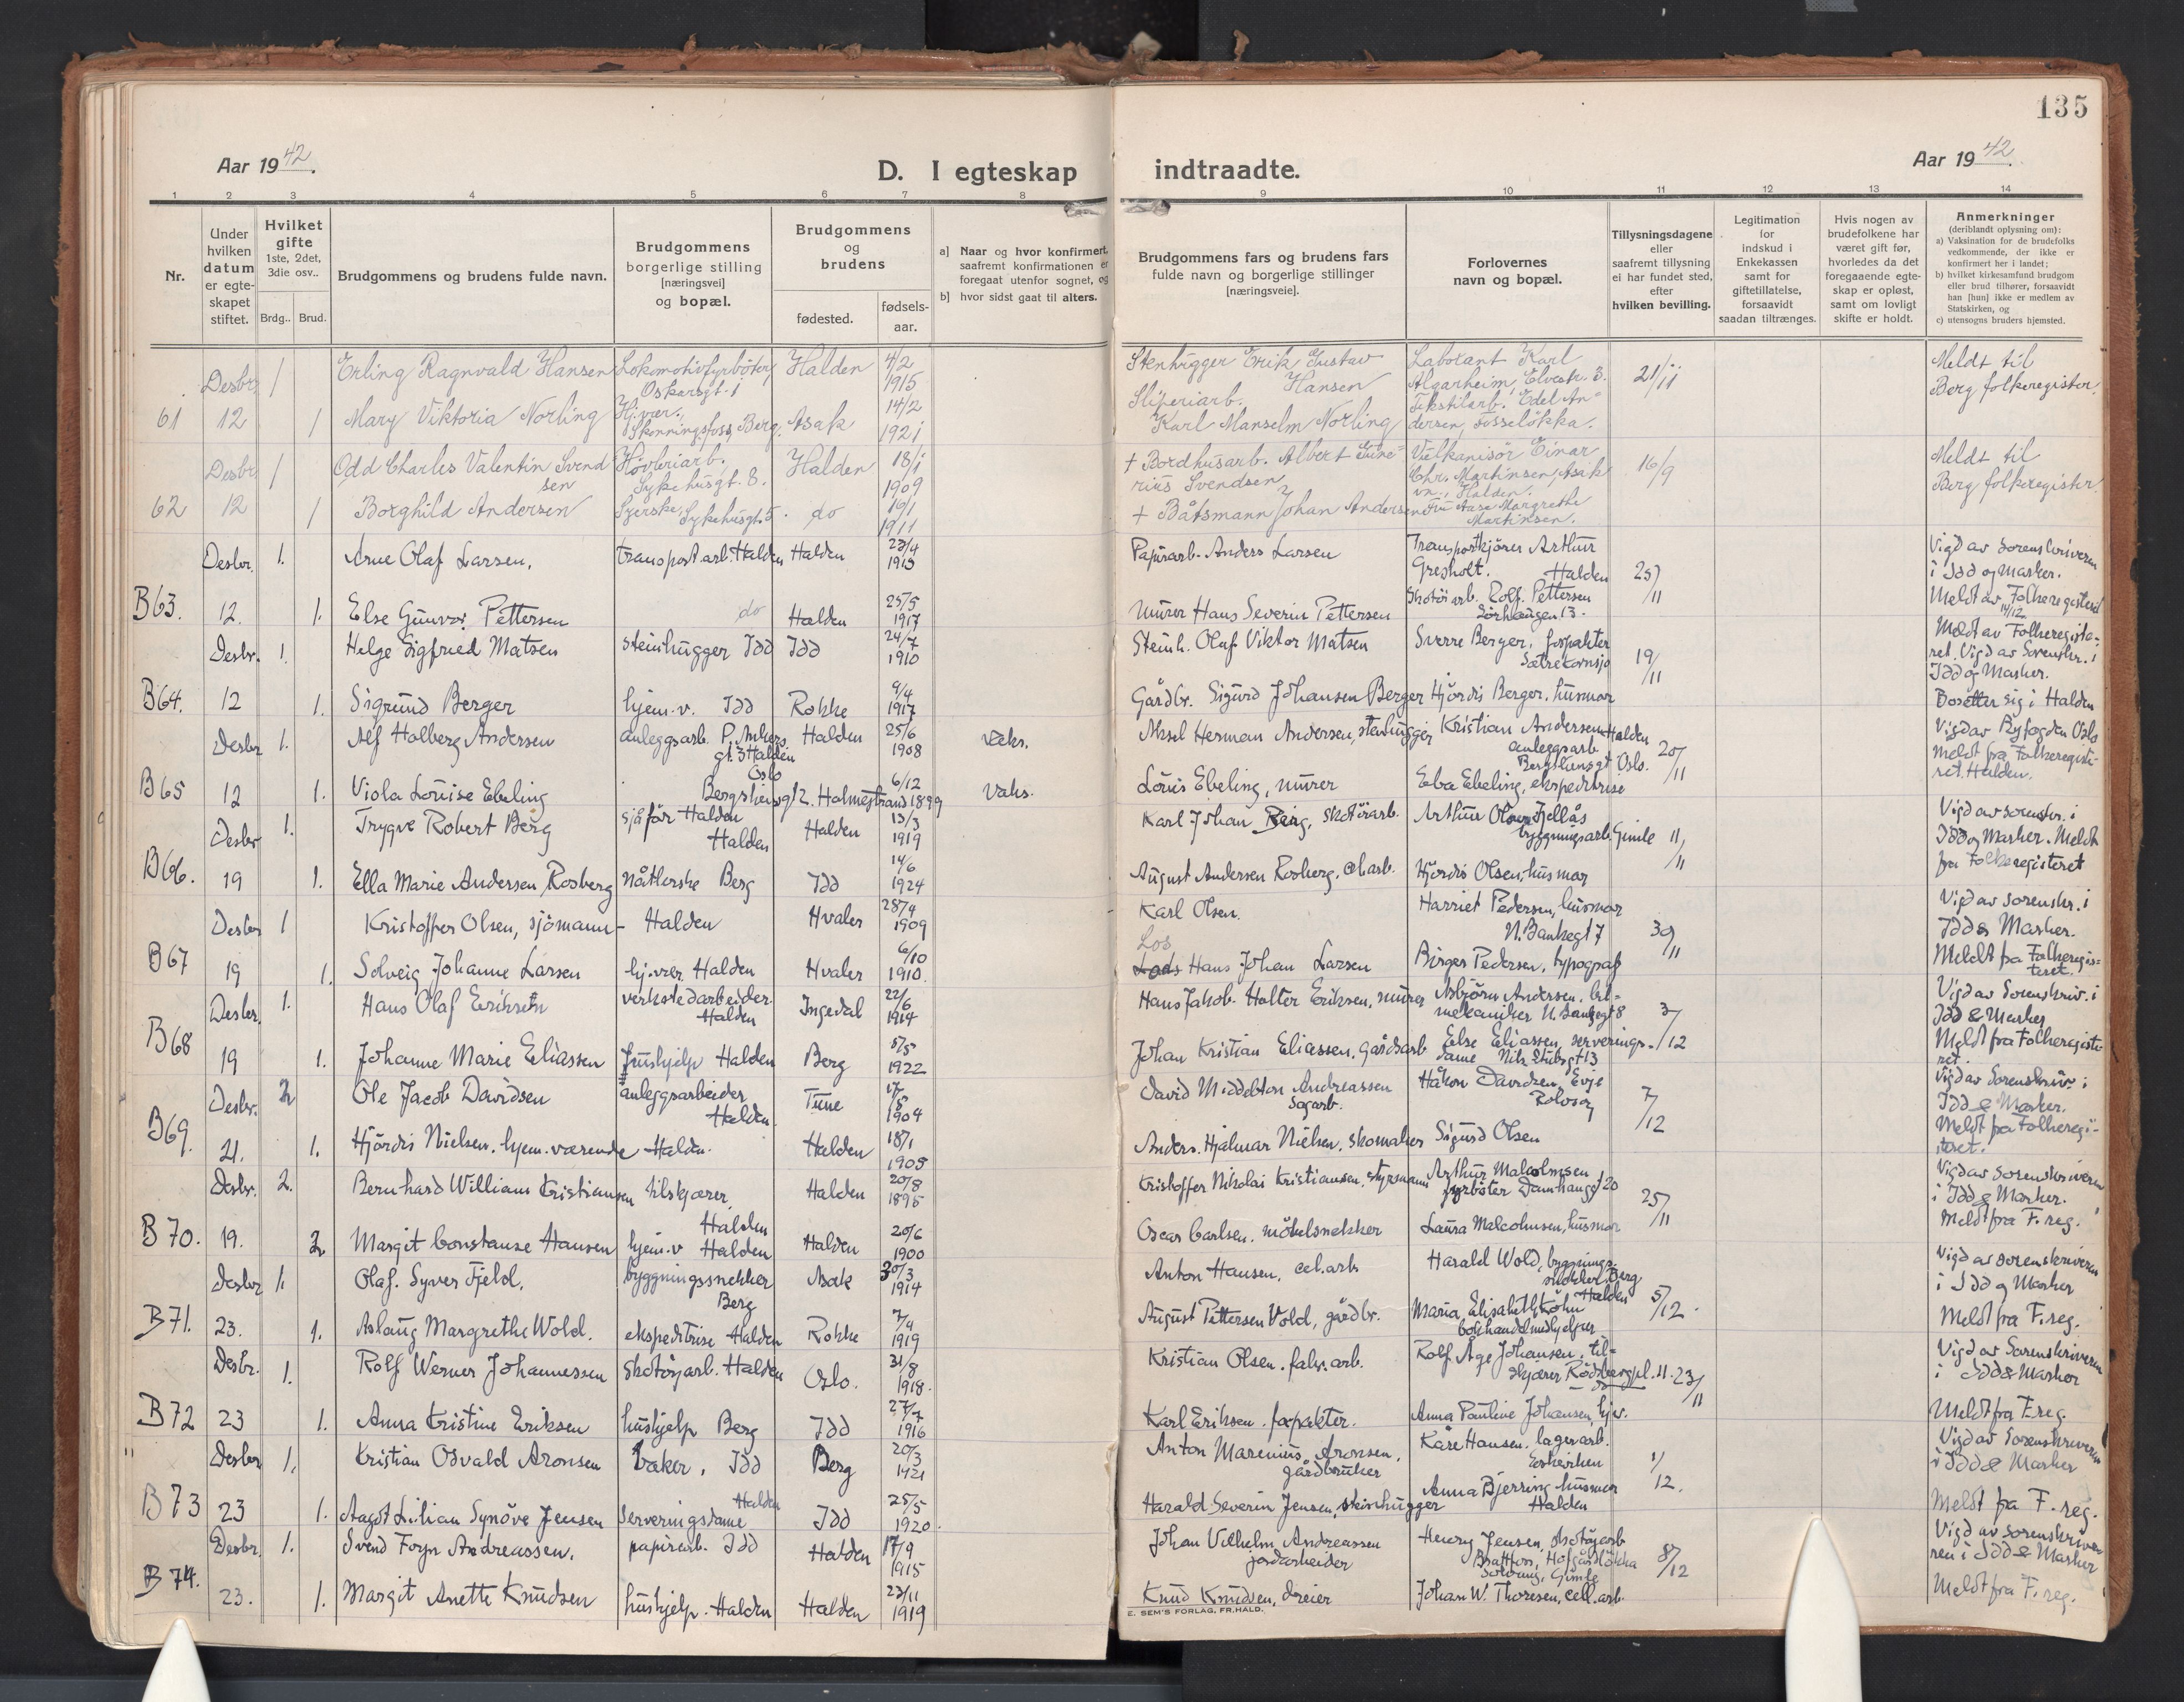 135
Aar 1942.
D. I egteskap indtraadte.
Aar 1942.
1 2 3 4 5 6 7 8 9 10 11 12 13 14
Nr.
Under hvilken datum er egteskapet stiftet.
Hvilket gifte 1ste, 2det, 3die osv..
Brdg.. Brud.
Brudgommens og brudens fulde navn.
Brudgommens borgerlige stilling [næringsvei] og bopæl.
Brudgommens og brudens
fødested.
fødsels-aar.
a] Naar og hvor konfirmert, saafremt konfirmationen er foregaat utenfor sognet, og
b] hvor sidst gaat til alters.
Brudgommens fars og brudens fars fulde navn og borgerlige stillinger [næringsveie].
Forlovernes navn og bopæl.
Tillysningsdagene eller saafremt tillysning ei har fundet sted, efter hvilken bevilling.
Legitimation for indskud i Enkekassen samt for giftetillatelse, forsaavidt saadan tiltrænges.
Hvis nogen av brudefolkene har været gift før, hvorledes da det foregaaende egteskap er opløst, samt om lovligt skifte er holdt.
Anmerkninger (deriblandt oplysning om):
a) Vaksination for de brudefolks vedkommende, der ikke er konfirmert her i landet;
b) hvilket kirkesamfund brudgom eller brud tilhører, forsaavidt han [hun] ikke er medlem av Statskirken, og
c) utensogns bruders hjemsted.
Desbr. 1 Erling Ragnvald Hansen Lokomotivfyrböter, Oskarsgt. 1 Halden 4/2 1915 Stenhugger Erik Gustav Hansen Laborant Karl Algarheim, Elvestr. 3. 21/11 Meldt til Berg folkeregister
61 12 1 Mary Viktoria Norling Hj.vær. Skonningsfoss, Berg. Asak 14/2 1921 Sliperiarb. Karl Manselm Norling Tekstilarb. Edel Andersen, Fosseløkka.
Desbr. 1 Odd Charles Valentin Svendsen Høvleriarb. Sykehusgt. 8. Halden 18/1 1909 + Bordhusarb. Albert Svendsen Vulkanisør Einar Chr. Martinsen, Asak vn., Halden. 16/9 Meldt til Berg folkeregister
62 12 1 Borghild Andersen Syerske, Sykehusgt. do 16/1 1911 + Båtsmann Johan Andersen Fru Aase Margrethe Martinsen.
Desbr. 1. Arne Olaf Larsen, transportarb. Halden Halden 23/4 1915 Papirarb. Anders Larsen Transportkjører Arthur Gresholt. Halden 25/11 Vigd av Sorenskriveren i Idd og Marker.
B63. 12. 1. Else Gunvor Pettersen do Halden 25/5 1917 Murer Hans Severin Pettersen Skotøiarb. Rolf Pettersen Sørhaugen 13. Meldt av Folkeregisteret 14/12
Desbr. 1. Helge Sigfried Matsen steinhugger Idd Idd 24/7 1910 Steinh. Olaf Viktor Matsen Sverre Berger, forpakter 19/11 Meldt av Folkeregisteret. Vigd av Sorenskr. i Idd og Marker.
B64. 12 1. Sigrund Berger hjem.v. Idd Rokke 9/4 1917 Gårdbr. Sigurd Johansen Berger Hjørdis Berger, husmor Bosetter sig i Halden
Desbr 1. Alf Holberg Andersen anleggsarb. P. Ankers gt. 3 Halden Halden 25/6 1908 Vaks. Aksel Herman Andersen, stenhugger Kristian Andersen Halden anleggsarb 20/11 Vigd av Byfogden Oslo Meldt fra Folkeregisteret. Halden.
B65 12 1. Viola Louise Ebeling Oslo Holmestrand 6/12 1899 Vaks. Louis Ebeling, murer Eba Ebeling, ekspeditrise Oslo.
Desbr 1. Trygve Robert Berg sjåför Halden Halden Halden 13/3 1919 Karl Johan Berg, skotöiarb. Arthur Olsen Fjellås bygningsarb. Gimle 11/11 Vigd av sorenskr. i Idd og Marker. Meldt fra Folkeregisteret
B66. 19 1. Ella Marie Andersen Rosberg nåtlerske Berg Idd 14/6 1924 August Andersen Rosberg, cel.arb. Hjördis Olsen, husmor
Desbr 1 Kristoffer Olsen, sjömann - Halden Hvaler 28/4 1909 Karl Olsen. Harriet Pedersen, husmor N. Bankegt 7 30/11 Vigd av sorenskr. i Idd & Marker.
B67 19 1. Solveig Johanne Larsen hj.vær Halden Hvaler 6/10 1910. Los Hans Johan Larsen Birger Pedersen, typograf Meldt fra Folkeregisteret.
Desbr. 1. Hans Olaf Eriksen verkstedarbeider Halden Ingedal 22/6 1914 Hans Jakob Halter Eriksen, murer Asbjörn Andersen, bilmekaniker N. Bankegt 8 3/12 Vigd av Sorenskriv. i Idd & Marker
B68 19 1. Johanne Marie Eliassen hushjelp Halden Berg 5/5 1922 Johan Kristian Eliassen, gårdsarb Else Eliassen, serveringsdame Nils Stubsgt 13 Meldt fra Folkeregisteret.
Desbr. 2 Ole Jacob Davidsen anleggsarbeider Halden. Tune 17/5 1904 David Middelton Andreassen Sagarb. Håkon Davidsen, Evje Rolvsøy 7/12 Vigd av Sorenskriv. i Idd & Marker.
B69. 21. 1. Hjördis Nielsen. hjem.værende Halden. Halden 18/1 1905 Anders Hjalmar Nielsen, skomaker Sigurd Olsen Meldt fra Folkeregisteret.
Desbr. 2. Bernhard William Kristiansen tilskjærer, Halden Halden 20/8 1895 Kristoffer Nikolai Kristiansen, styrmann Arthur Malcolmsen fyrböter Damhaugt 20 25/11 Vigd av Sorenskriveren i Idd & Marker.
B70. 19. 2. Margit Constanse Hansen hjem.v Halden Halden 20/6 1900 Oscar Carlsen, möbelsnekker Laura Malcolmsen, husmor Meldt fra F. reg.
Desbr 1. Olaf. Syver Fjeld. byggningssnekker Berg Asak 30/3 1914 Anton Hansen, cel.arb Harald Wold, byggningssnekker, Berg 5/12. Vigd av sorenskriveren i Idd og Marker
B71. 23. 1. Aslaug Margrethe Wold. ekspeditrise Halden Rokke 7/4 1919 August Pettersen Vold, gårdbr. Maria Elisabeth Köhn Halden bokhandelmedhjelper Meldt fra F. reg.
Desbr. 1. Rolf Werner Johannessen skotöjarb. Halden Oslo. 31/8 1918. Kristian Olsen, fabr.arb. Rolf Åge Johansen, tilskjærer Rödsbergpl. 11. 23/11 Vigd av Sorenskriveren i Idd & Marker
B72 23 1. Anna Kristine Eriksen hushjelp Berg Idd 27/7 1916 Karl Eriksen. forpakter. Anna Pauline Johansen, hjv. Meldt fra F. reg.
Desbr 1. Kristian Osvald Aronsen baker. Idd Berg 20/3 1921 Anton Marenius Aronsen, gårdbruker Kåre Hansen, lagerarb. 1/12. Vigd av Sorenskriveren i Idd & Marker
B73 23 1. Aagot Lilian Synöve Jensen Serveringsdame Halden Idd 25/5 1920. Harald Severin Jensen, steinhugger Anna Bjerring husmor Halden Meldt fra F. reg.
Desbr. 1. Svend Foyn Andreassen. papirarb. Idd Halden 17/9 1915 Johan Vilhelm Andreassen jordarbeider Henry Jensen, skotöyarb 8/12 Vigd av Sorenskriveren i Idd & Marker
B74. 23. 1. Margit Anette Knudsen hushjelp. Halden Halden 23/11 1919 Knud Knudsen, dreier Johan W. Thoresen, cell.arb. Meldt fra F. reg.
E. SEM'S FORLAG, FR.HALD.